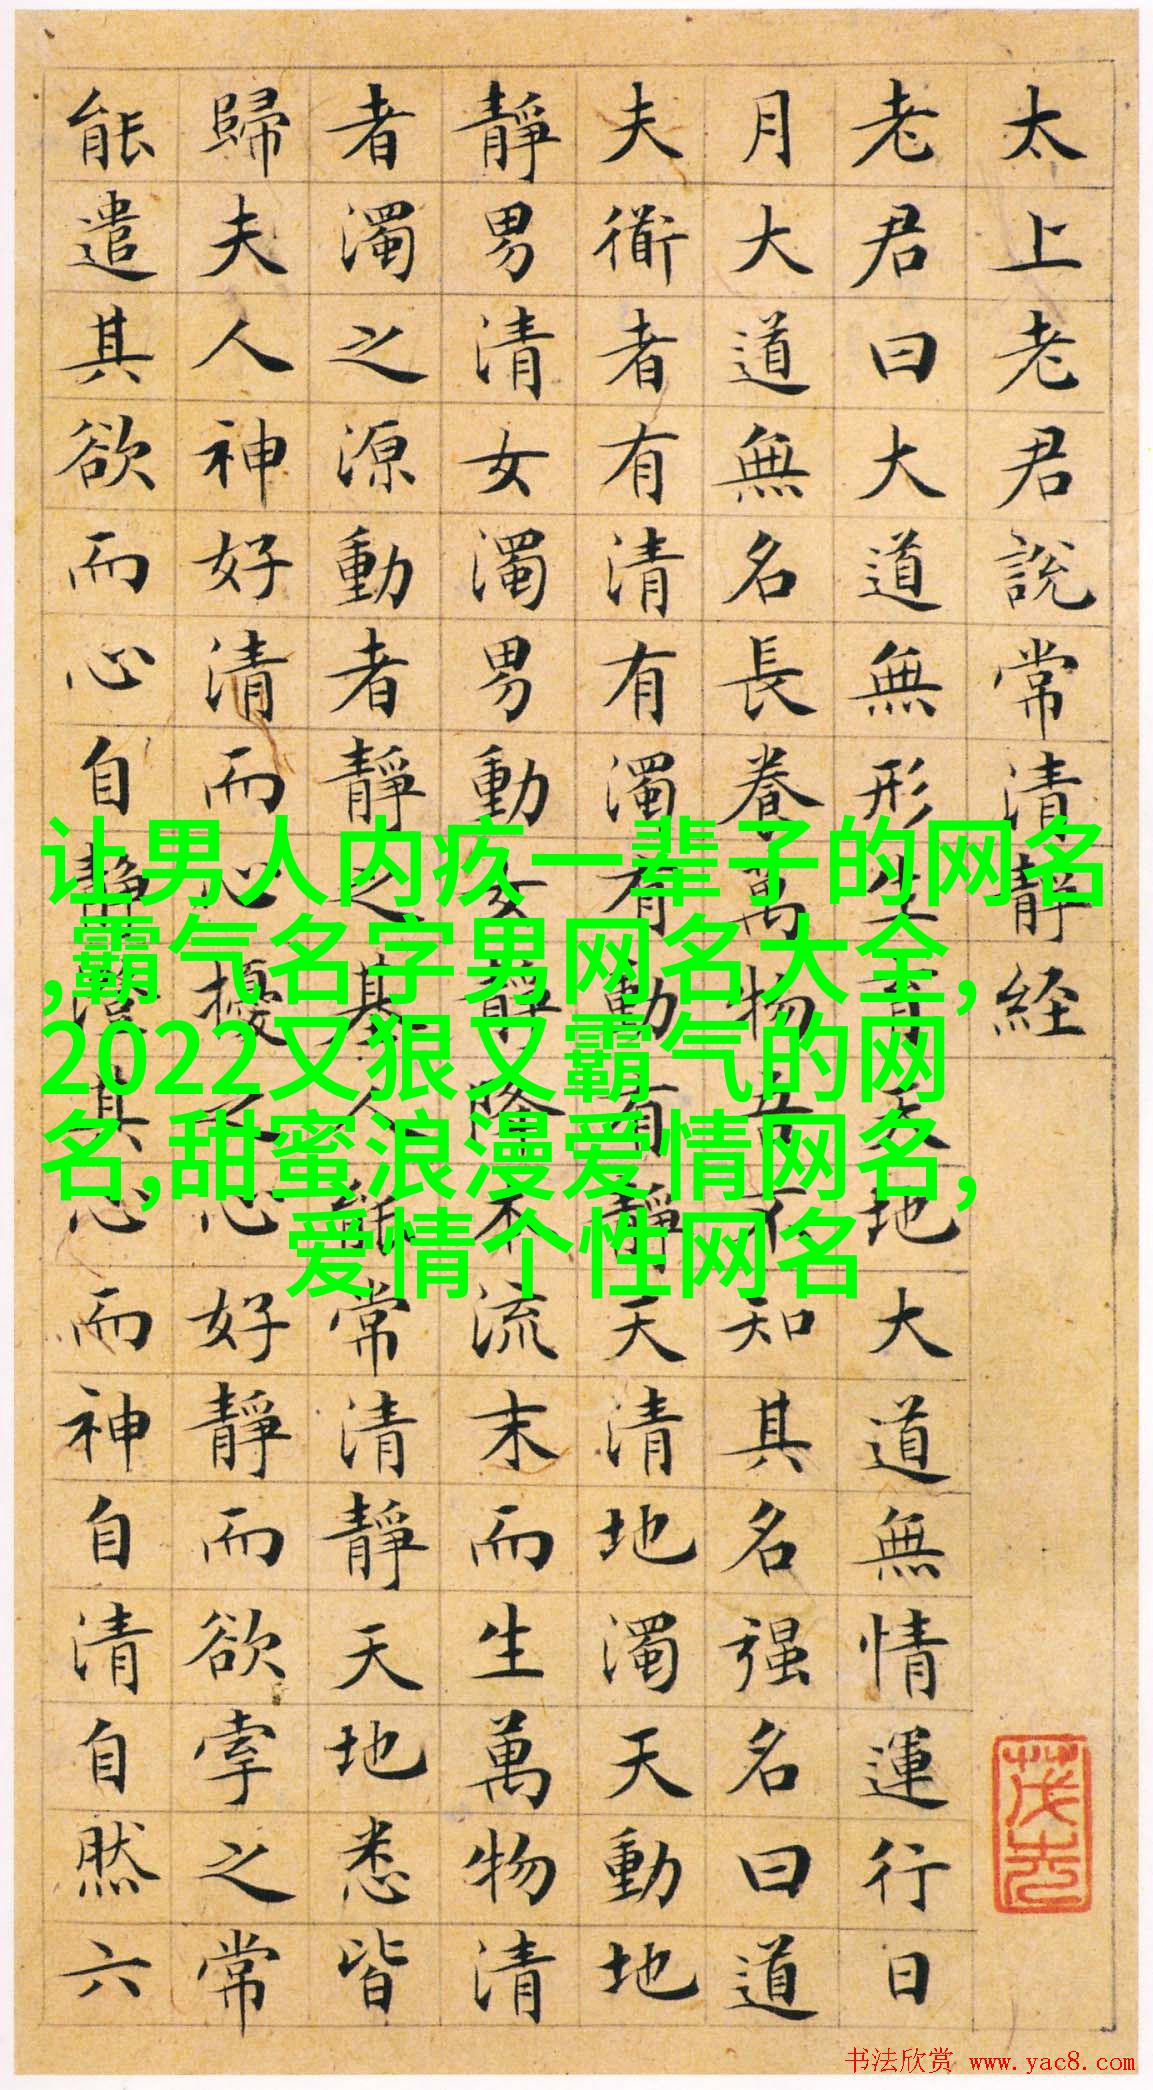 太上老君說常清靜経
老君曰大道無形生育天地大道無情運行日
月大道無名長養萬物吾不知其名强名曰道
夫衜者有清有濁有動有靜天清地濁天動地
靜男清女濁男動女靜降本流末而生萬物清
者濁之源動者靜之基人能常清靜天地悉皆
歸夫人神好清而心擾之心好靜而欲牽之常
能遣其欲而心自靜澄其心而神自清自然六
让男人内疚一辈子的网名
,霸气名字男网名大全,
2022又狠又霸气的网
名,甜蜜浪漫爱情网名,
爱情个性网名
书法欣赏 www.yac8.com